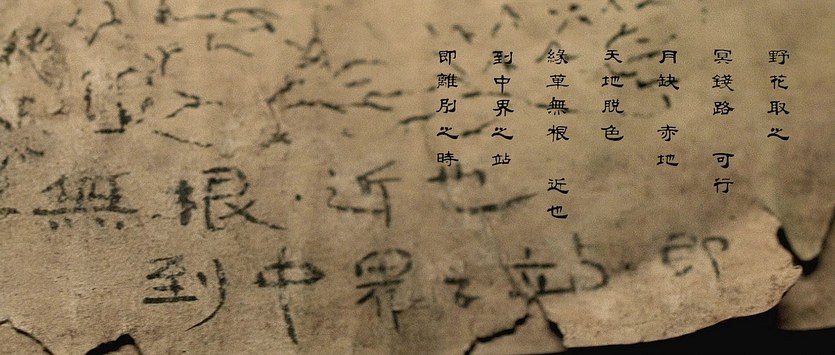 野花取之
冥錢路 可行
月缺 赤地
天地脱色
綠草無根 近也
到中界之站
即離別之時
無根·近也
到中界之站·即